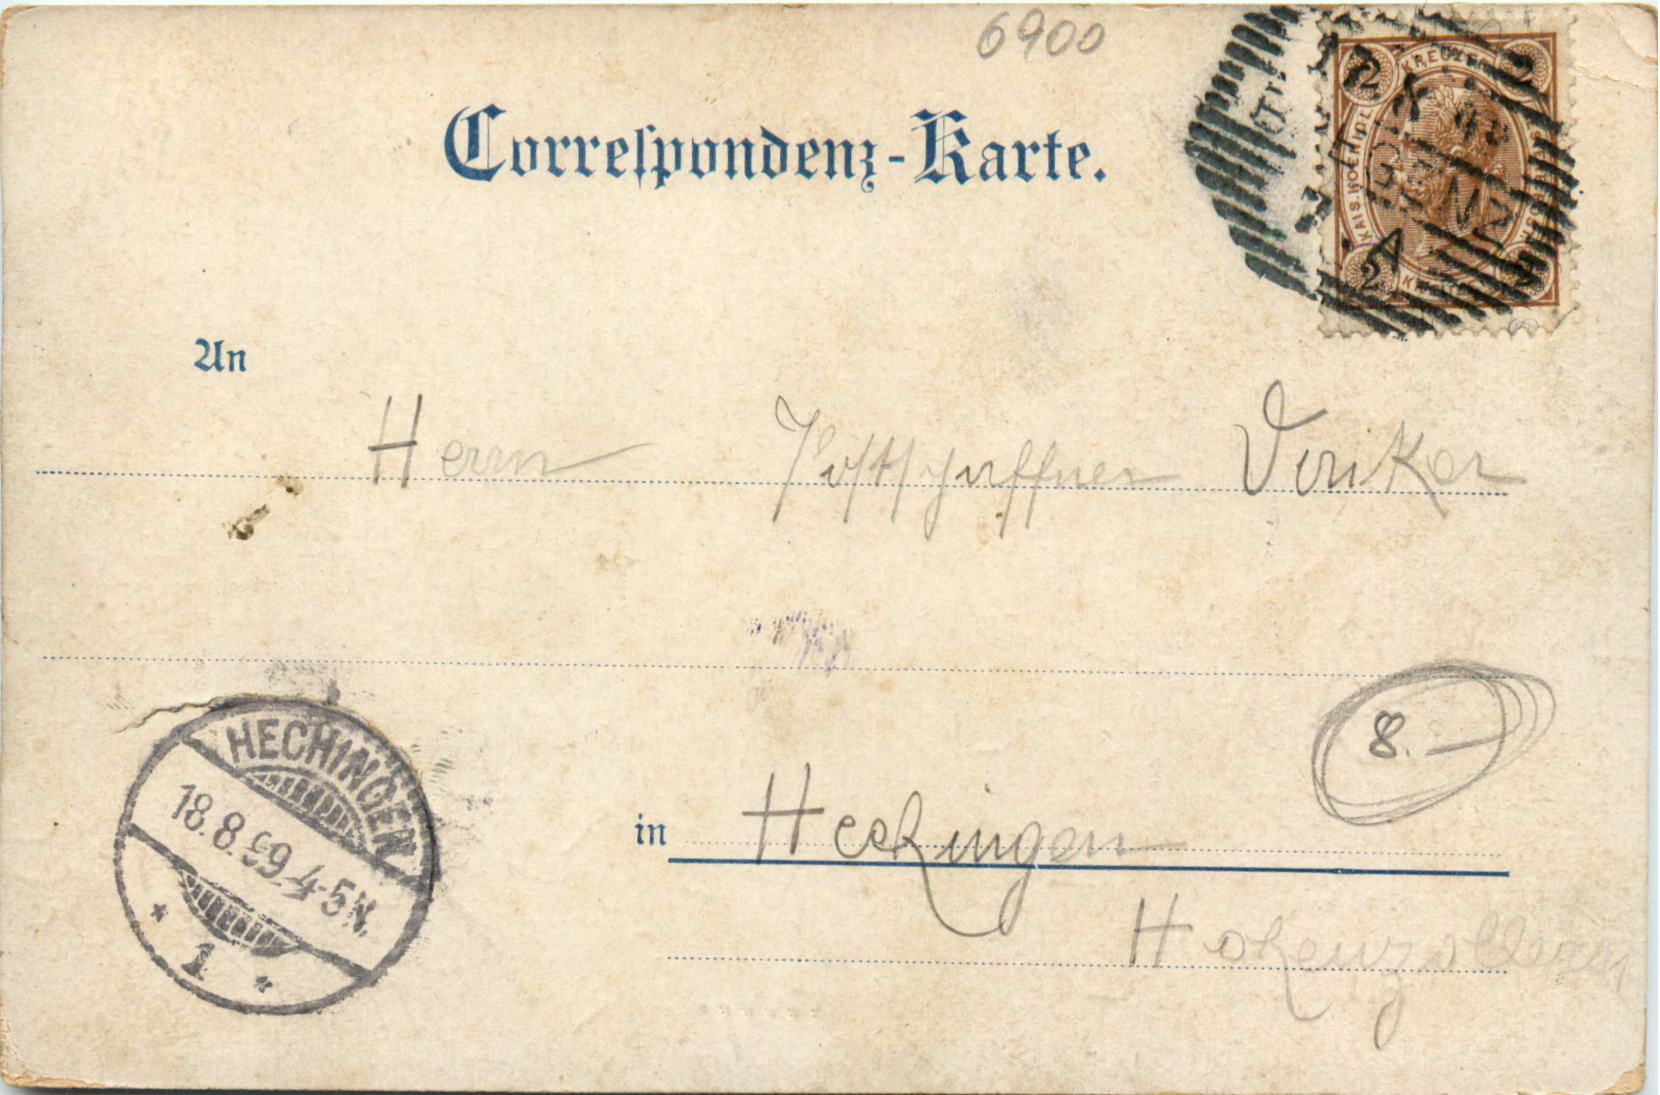 6900
Correſpondenz-Karte.
2 KREUZER 2
KAIS. KOENIGL.
2 2
An
Herrn Poſtſchaffner
8. —
HECHINGEN
18.8.99.4-5N.
* 1 *
in Hechingen
Hohenzollern